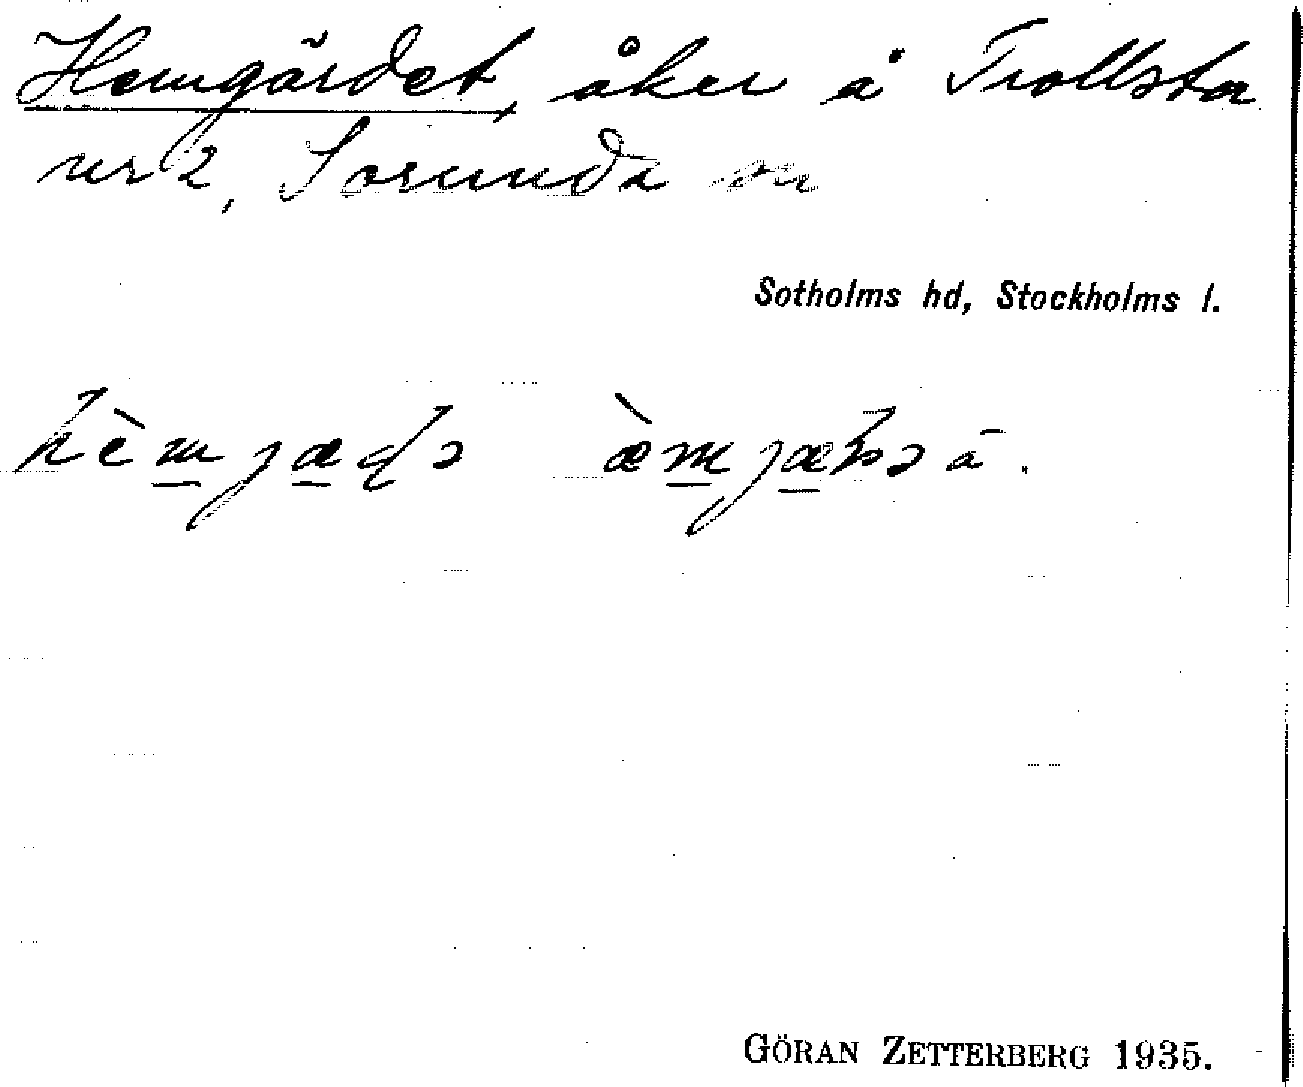 Hemgärdet, åker å Trollsta
nr 2, Sorunda sn
Sotholms hd, Stockholms l.
GÖRAN ZETTERBERG 1935.